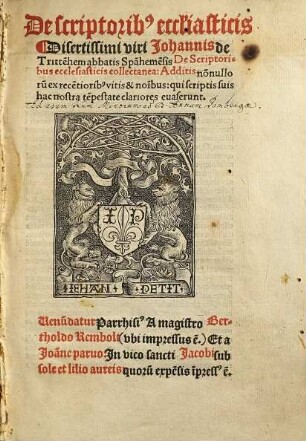 De scriptorib⁹ ecclīasticis
Disertissimi viri Johannis de
Trittēhem abbatis Spāhemēsis De Scriptori
bus ecclesiasticis collectanea: Additis nōnullo
rū ex recētiorib⁹ vitis & noībus: qui scriptis suis
hac nostra tēpestate clariores euaserunt.
I P
IEHAN PETIT
Venūdatur Parrhisi⁹ A magistro Ber-
tholdo Rembolt (vbi impressus ē.) Et a
Joāne paruo: In vico sancti Jacobi sub
sole et lilio aureis quorū expēsis īpress⁹ ē.